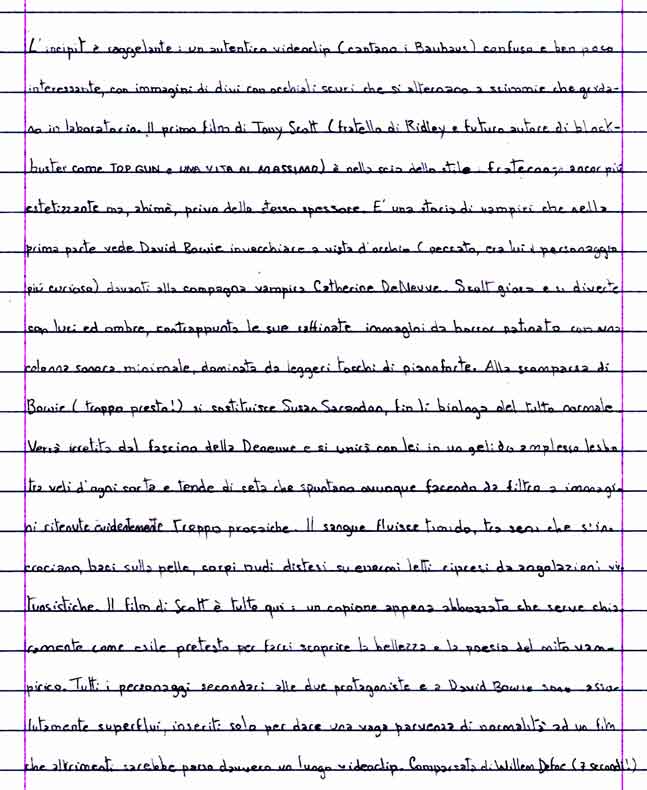 L'incipit è raggelante: un autentico videoclip (cantano i Bauhaus) confuso e ben poco
interessante, con immagini di divi con occhiali scuri che si alternano a scimmie che grida-
no in laboratorio. Il primo film di Tony Scott (fratello di Ridley e futuro autore di block-
buster come TOP GUN e UNA VITA AL MASSIMO) è nella scia dello stile fraterno: ancor più
estetizzante ma, ahimè, privo dello stesso spessore. E' una storia di vampiri che nella
prima parte vede David Bowie invecchiare a vista d'occhio (peccato, era lui il personaggio
più curioso) davanti alla compagna vampira Catherine DeNeuve. Scott gioca e si diverte
con luci ed ombre, contrappunta le sue raffinate immagini da horror patinato con una
colonna sonora minimale, dominata da leggeri tocchi di pianoforte. Alla scomparsa di
Bowie (troppo presto!) si sostituisce Susan Sarandon, fin lì biologa del tutto normale.
Verrà irretita dal fascino della Deneuve e si unirà con lei in un gelido amplesso lesbo
tra veli d'ogni sorta e tende di seta che spuntano ovunque facendo da filtro a immagi-
ni ritenute evidentemente troppo prosaiche. Il sangue fluisce timido, tra seni che s'in-
crociano, baci sulla pelle, corpi nudi distesi su enormi letti ripresi da angolazioni vir-
tuosistiche. Il film di Scott è tutto qui: un copione appena abbozzato che serve chia-
ramente come esile pretesto per farci scoprire la bellezza e la poesia del mito vam-
pirico. Tutti i personaggi secondari alle due protagoniste e a David Bowie sono asso-
lutamente superflui, inseriti solo per dare una vaga parvenza di normalità ad un film
che altrimenti sarebbe parso davvero un lungo videoclip. Comparsata di Willem Defoe (7 secondi!)